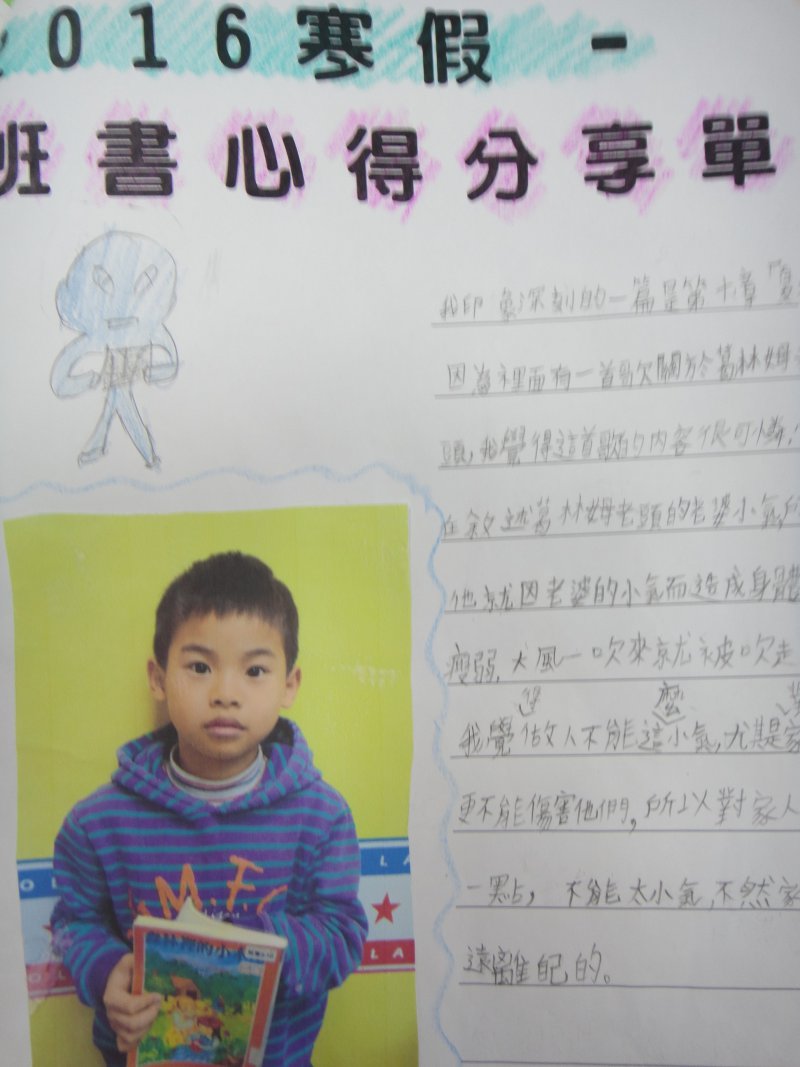 2016寒假 -
班書心得分享單
我印象深刻的一篇是第十章「
因為裡面有一首歌關於葛林姆
頭,我覺得這首歌的內容很可憐,
在敘述葛林姆老頭的老婆小氣,
他就因老婆的小氣而造成身體
瘦弱,大風一吹來就被吹走
得 麼
我覺做人不能這小氣,尤其是家
更不能傷害他們,所以對家人
一點, 不能太小氣,不然家
遠離自己的。
M.F.C
林裡的小
O L
L A
O L
L A